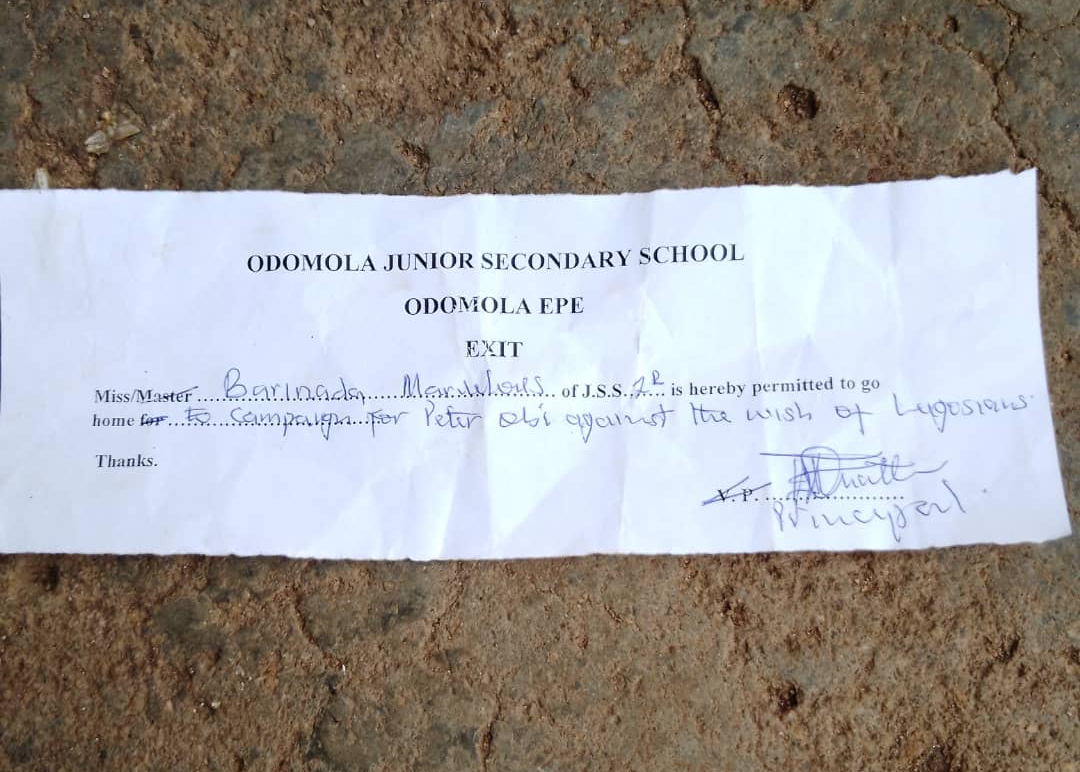 ODOMOLA JUNIOR SECONDARY SCHOOL
ODOMOLA EPE
EXIT
Miss/Master Barinada of J.S.S. 2R is hereby permitted to go
home for to campaign for Peter Obi against the wish of Lagosians.
Thanks.
V. P.
Principal.